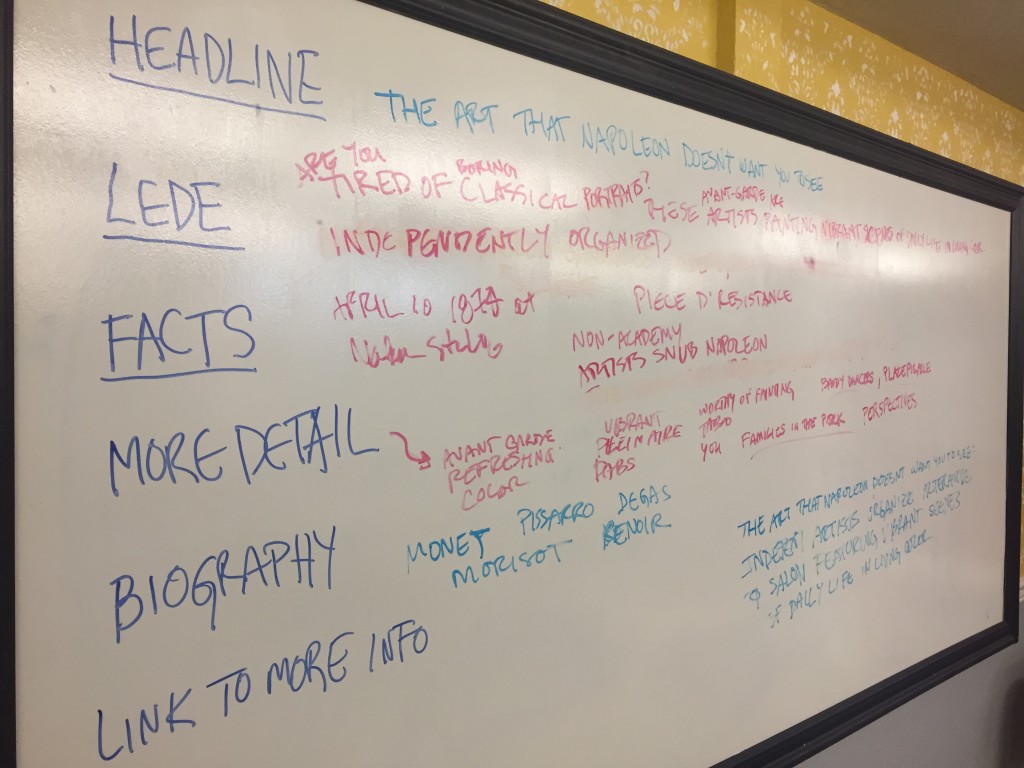 HEADLINE
THE ART THAT NAPOLEON DOESN'T WANT YOU TO SEE
LEDE
ARE YOU
TIRED OF BORING CLASSICAL PORTRAITS?
THESE AVANT-GARDE ARTISTS PAINTING VIBRANT SCENES OF DAILY LIFE IN LIVING COLOR
INDEPENDENTLY ORGANIZED
FACTS
APRIL 10 1874 at
PIECE D'RESISTANCE
NON-ACADEMY
ARTISTS SNUB NAPOLEON
MORE DETAIL
AVANT GARDE
REFRESHING
COLOR
VIBRANT
WORTHY OF FAINTING
YOU
FAMILIES IN THE PARK
PERSPECTIVES
BIOGRAPHY
MONET PISSARRO DEGAS
MORISOT RENOIR
THE ART THAT NAPOLEON DOESNT WANT YOU TO SEE:
ARTISTS ORGANIZE ALTERNATIVE
SALON FEATURING VIBRANT SCENES
OF DAILY LIFE IN LIVING COLOR
LINK TO MORE INFO